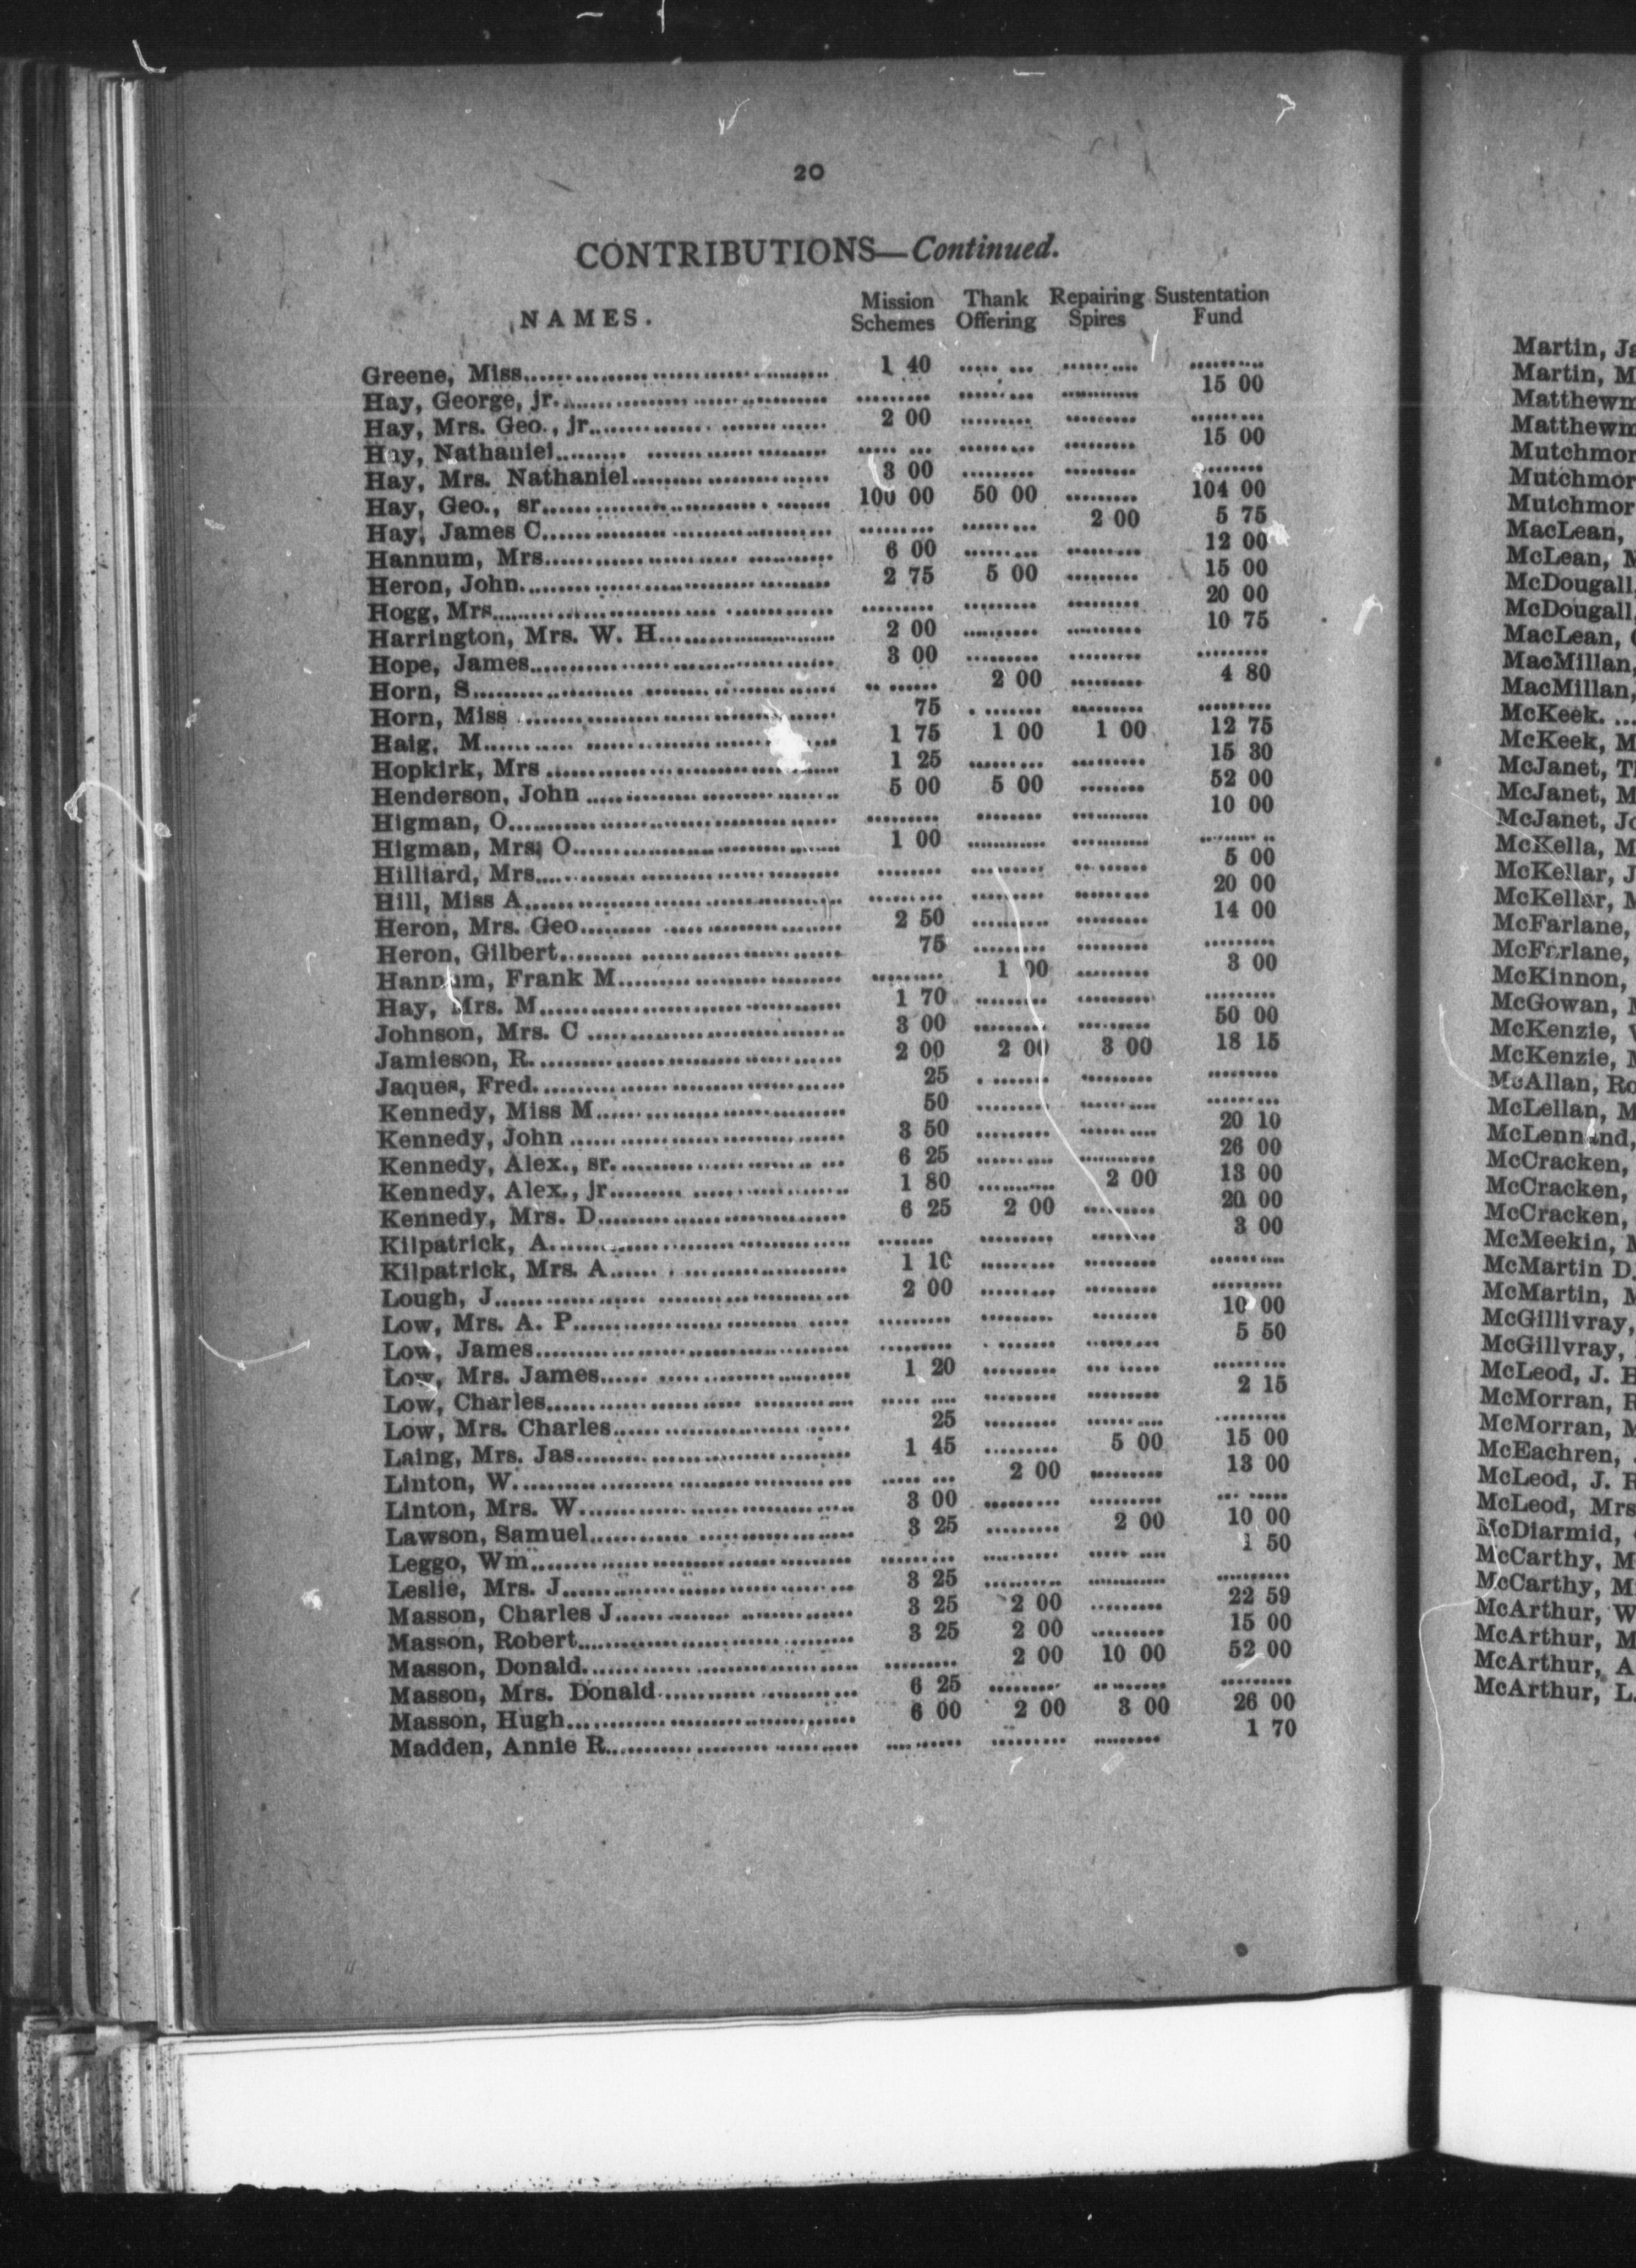 20
CONTRIBUTIONS—Continued.
NAMES. Mission Schemes Thank Offering Repairing Spires Sustentation Fund
Greene, Miss 1 40 ........ ........ ........
Hay, George, jr. ........ ........ ........ 15 00
Hay, Mrs. Geo., jr 2 00 ........ ........ ........
Hay, Nathaniel ........ ........ ........ 15 00
Hay, Mrs. Nathaniel 3 00 ........ ........ ........
Hay, Geo., sr 100 00 50 00 ........ 104 00
Hay, James C ........ ........ 2 00 5 75
Hannum, Mrs 6 00 ........ ........ 12 00
Heron, John 2 75 5 00 ........ 15 00
Hogg, Mrs ........ ........ ........ 20 00
Harrington, Mrs. W. H 2 00 ........ ........ 10 75
Hope, James 3 00 ........ ........ ........
Horn, S ........ 2 00 ........ 4 80
Horn, Miss 75 ........ ........ ........
Haig, M 1 75 1 00 1 00 12 75
Hopkirk, Mrs 1 25 ........ ........ 15 30
Henderson, John 5 00 5 00 ........ 52 00
Higman, O ........ ........ ........ 10 00
Higman, Mrs. O 1 00 ........ ........ ........
Hilliard, Mrs ........ ........ ........ 5 00
Hill, Miss A ........ ........ ........ 20 00
Heron, Mrs. Geo 2 50 ........ ........ 14 00
Heron, Gilbert 75 ........ ........ ........
Hannum, Frank M ........ 1 00 ........ 3 00
Hay, Mrs. M 1 70 ........ ........ ........
Johnson, Mrs. C 3 00 ........ ........ 50 00
Jamieson, R. 2 00 2 00 3 00 18 15
Jaques, Fred. 25 ........ ........ ........
Kennedy, Miss M 50 ........ ........ ........
Kennedy, John 3 50 ........ ........ 20 10
Kennedy, Alex., sr. 6 25 ........ ........ 26 00
Kennedy, Alex., jr 1 80 ........ 2 00 13 00
Kennedy, Mrs. D 6 25 2 00 ........ 20 00
Kilpatrick, A. ........ ........ ........ 3 00
Kilpatrick, Mrs. A 1 10 ........ ........ ........
Lough, J 2 00 ........ ........ ........
Low, Mrs. A. P ........ ........ ........ 10 00
Low, James ........ ........ ........ 5 50
Low, Mrs. James 1 20 ........ ........ ........
Low, Charles ........ ........ ........ 2 15
Low, Mrs. Charles 25 ........ ........ ........
Laing, Mrs. Jas 1 45 ........ 5 00 15 00
Linton, W. ........ 2 00 ........ 13 00
Linton, Mrs. W 3 00 ........ ........ ........
Lawson, Samuel 3 25 ........ 2 00 10 00
Leggo, Wm ........ ........ ........ 1 50
Leslie, Mrs. J 3 25 ........ ........ ........
Masson, Charles J 3 25 2 00 ........ 22 59
Masson, Robert 3 25 2 00 ........ 15 00
Masson, Donald. ........ 2 00 10 00 52 00
Masson, Mrs. Donald 6 25 ........ ........ ........
Masson, Hugh 6 00 2 00 3 00 26 00
Madden, Annie R ........ ........ ........ 1 70
Martin, Ja
Martin, M
Matthewm
Matthewm
Mutchmor
Mutchmor
Mutchmor
MacLean,
McLean, M
McDougall,
McDougall,
MacLean,
MacMillan,
MacMillan,
McKeek.
McKeek, M
McJanet, Th
McJanet, M
McJanet, Jo
McKella, M
McKellar, J
McKellar, M
McFarlane,
McFarlane,
McKinnon,
McGowan, M
McKenzie,
McKenzie, M
McAllan, Ro
McLellan, M
McLennand,
McCracken,
McCracken,
McCracken,
McMeekin, M
McMartin D.
McMartin, M
McGillivray,
McGillvray,
McLeod, J. H
McMorran, R
McMorran, M
McEachren,
McLeod, J. R
McLeod, Mrs
McDiarmid,
McCarthy, M
McCarthy, M
McArthur, W
McArthur, M
McArthur, A
McArthur, L.